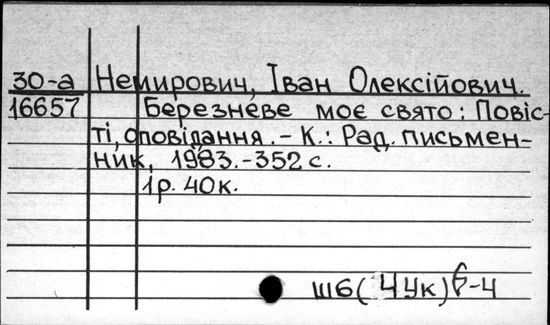 30-а Немирович, Іван Олексійович.
16657 Березнéве моє свято: Повіс-
ті, оповідання. - К.: Рад. письмен-
ник, 1983. - 352 с.
1р. 40к.
Ш6(4Ук)6-4